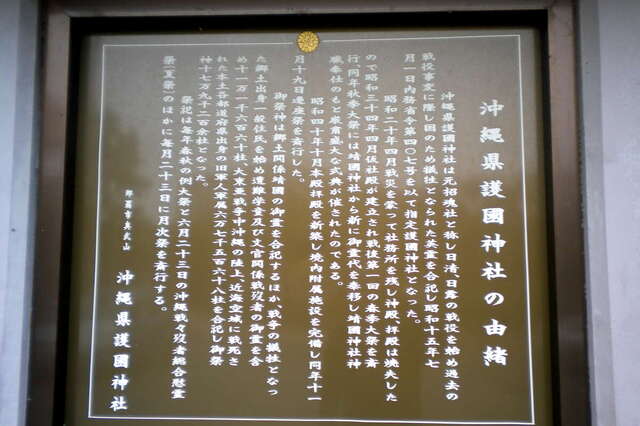 沖縄県護國神社の由緒
沖縄県護國神社は元招魂社と称し日清、日露の戦役を始め過去の
戦役事変に際し国のため犠牲となられた英霊を合祀し昭和十五年七
月一日内務省令第四〇七号を以て指定護國神社となった。
昭和二十年四月戦災を蒙って社務所を残し神殿、拝殿は焼失した
ので昭和三十四年四月仮社殿が建立され戦後第一回の春季大祭を斎
行、同年秋季大祭には靖國神社から新に御霊代を奉移し靖國神社神
職奉仕のもと炭盛大な式典が催されたのである。
昭和四十年十月本殿拝殿を新築し境内附属施設を完備し同年十一
月十九日遷座祭を斎行した。
御祭神は郷土関係靖國の御霊を合祀するほか、戦争の犠牲となっ
た郷土出身一般住民を始め遭難学童及び文官関係戦没者の御霊を含
め十一万一千六百六十柱、大東亜戦争中沖縄の陸上、近海空域に戦死さ
れた本土各都道府県出身の旧軍人軍属六万七千五百六十八柱を合祀し御祭
神十七万九千二百余柱となった。
祭祀は毎年春秋の例大祭と六月二十三日の沖縄戦々没者総合慰霊
祭、夏祭のほかに毎月二十三日に月次祭を斎行する。
那覇市奥武山 沖縄県護國神社